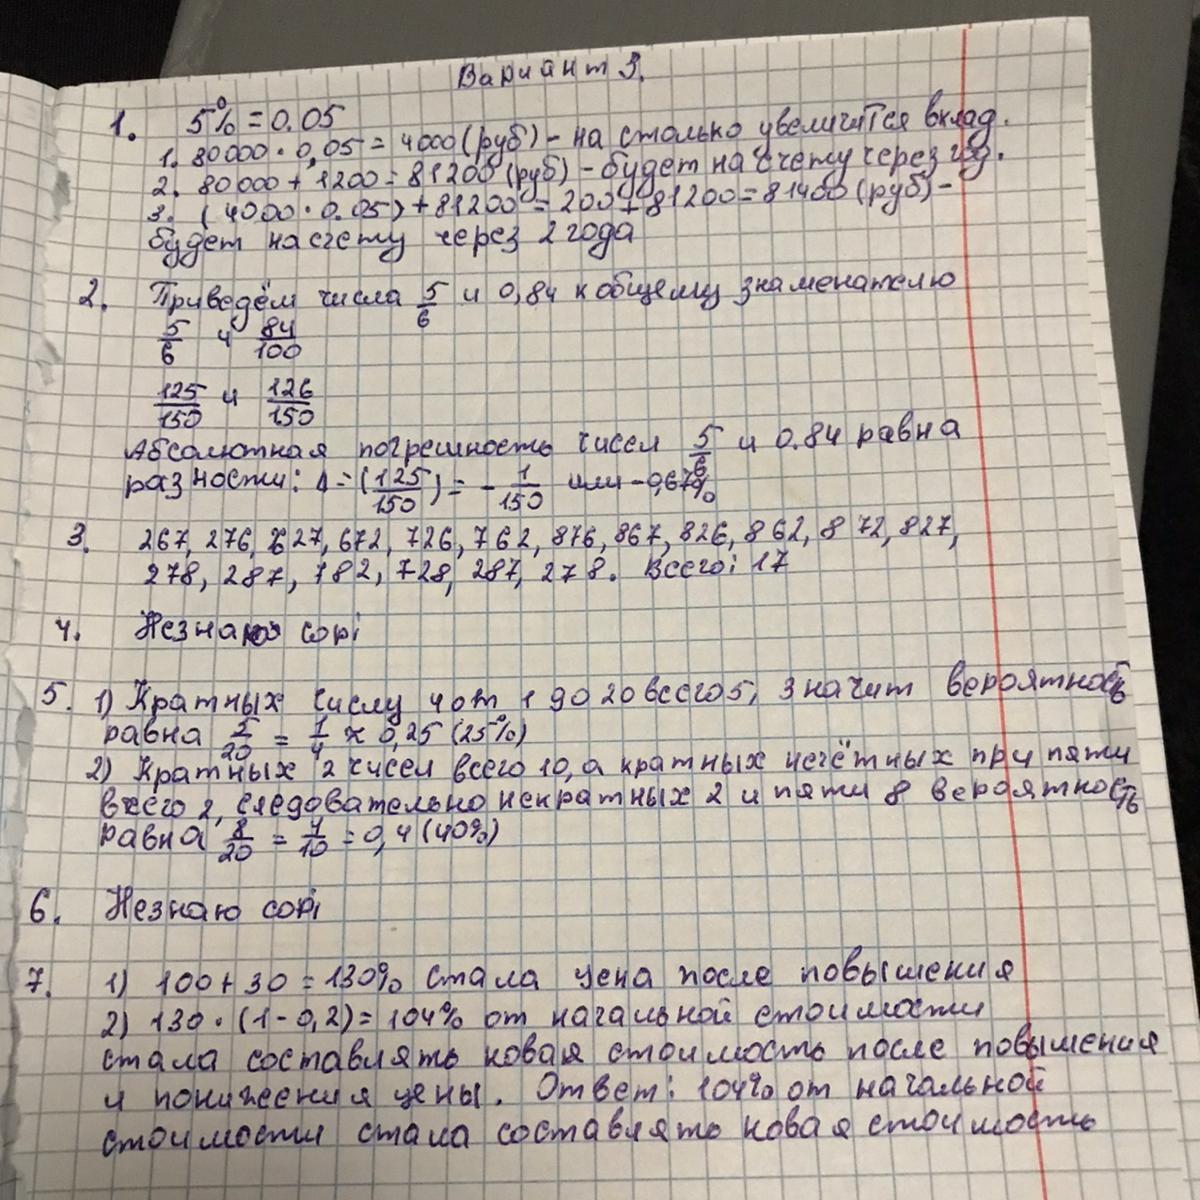 Вариант 3.
1. 5% = 0.05
1. 80000 · 0,05 = 4000 (руб) - на столько увеличится вклад.
2. 80000 + 1200 = 81200 (руб) - будет на счету через год.
3. (4000 · 0.05) + 81200 = 200 + 81200 = 81400 (руб) -
будет на счету через 2 года
2. Приведём числа 5/6 и 0,84 к общему знаменателю
5/6 и 84/100
125/150 и 126/150
Абсолютная погрешность чисел 5/6 и 0.84 равна
разности: Δ = (125/150) = - 1/150 или -0,67%
3. 267, 276, 627, 672, 726, 762, 876, 867, 826, 862, 872, 827,
278, 287, 782, 728, 287, 278. Всего: 17
4. Незнаю сорі
5. 1) Кратных числу 4 от 1 до 20 всего 5, значит вероятность
равна 5/20 = 1/4 × 0,25 (25%)
2) Кратных 2 чисел всего 10, а кратных нечётных при пяти
всего 2, следовательно некратных 2 и пяти 8 вероятность
равна 8/20 = 4/10 = 0,4 (40%)
6. Незнаю сорі
7. 1) 100 + 30 = 130% стала цена после повышения
2) 130 · (1 - 0,2) = 104% от начальной стоимости
стала составлять новая стоимость после повышения
и понижения цены. Ответ: 104% от начальной
стоимости стала составлять новая стоимость